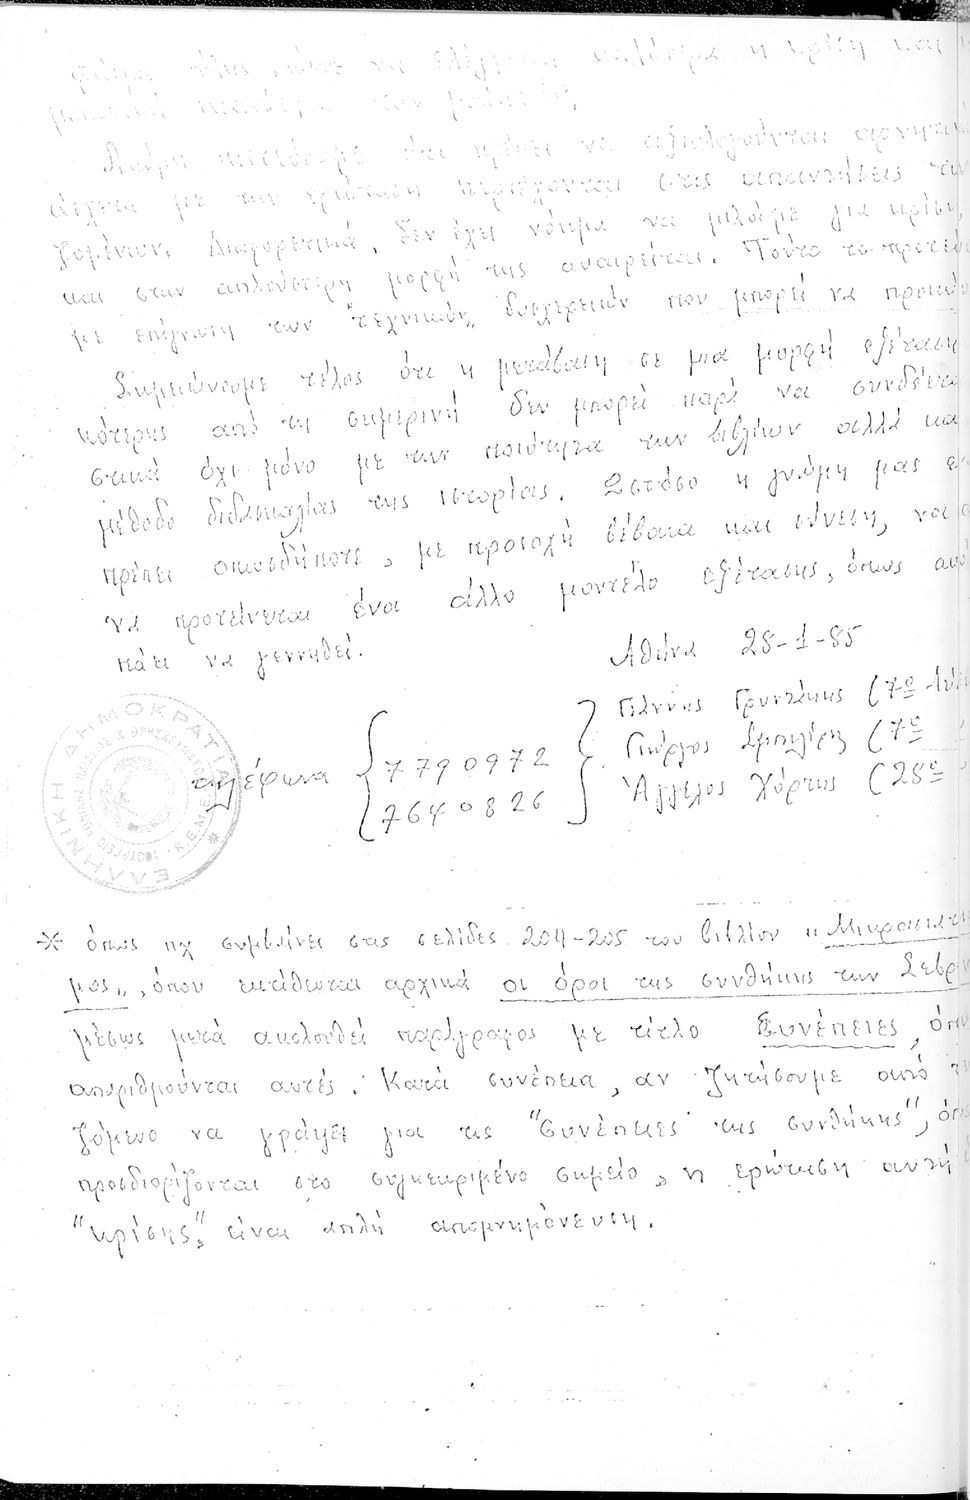 να ελέγχεται καλύτερα η κρίση και
του μαθητή.
Ακόμη πιστεύουμε ότι πρέπει να αξιολογούνται αρνητικά
άσχετα με την ερώτηση περιέχονται στις απαντήσεις των
ζομένων. Διαφορετικά, δεν έχει νόημα να μιλάμε για κρίση,
και στην απλούστερη μορφή της αναιρείται. Τούτο το προτεί
με επίγνωση των "τεχνικών" δυσχερειών που μπορεί να προκύ
Σημειώνουμε τέλος ότι η μετάβαση σε μια μορφή εξέτασης
κότερης από τη σημερινή δεν μπορεί παρά να συνδέεται
στικά όχι μόνο με την ποιότητα των βιβλίων αλλά και
μέθοδο διδασκαλίας της ιστορίας. Ωστόσο η γνώμη μας εί
πρέπει οπωσδήποτε, με προσοχή βέβαια και σύνεση, να α
να προτείνεται ένα άλλο μοντέλο εξέτασης, όπως αυτό
πάει να γεννηθεί.
Αθήνα 28-1-85
τηλέφωνα { 7790972
7640826 }
Γιάννης (7ο Λύκ
Γιώργος (7ο
Άγγελος Χόρτης (28ο
ΕΛΛΗΝΙΚΗ ΔΗΜΟΚΡΑΤΙΑ
* όπως πχ συμβαίνει στις σελίδες 204-205 του βιβλίου "Μικρασιατι
μος", όπου εκτίθενται αρχικά οι όροι της συνθήκης των Σεβρών
μέσως μετά ακολουθεί παράγραφος με τίτλο Συνέπειες, όπου
απαριθμούνται αυτές. Κατά συνέπεια, αν ζητήσουμε από τ
ζόμενο να γράψει για τις "Συνέπειες της συνθήκης", όπως
προσδιορίζονται στο συγκεκριμένο σημείο, η ερώτηση αυτή
"κρίσης", είναι απλή απομνημόνευση.